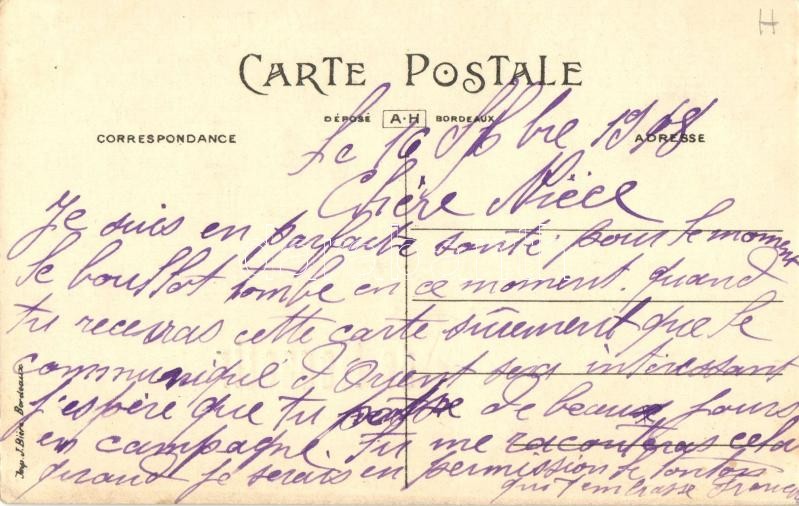 H
CARTE POSTALE
DÉPOSÉ A·H BORDEAUX
CORRESPONDANCE
ADRESSE
Le 16 7bre 1918
Chère Nièce
Je suis en parfaite santé. pour le moment
le boullot tombe en ce moment. quand
tu recevras cette carte sûrement que le
communiqué d'Orient sera intéressant
j'espère que tu de beaux jours
en campagne. Tu me raconteras cela
quand je serais en permission le tonton
qui t'embrasse
Imp. J. Bière, Bordeaux